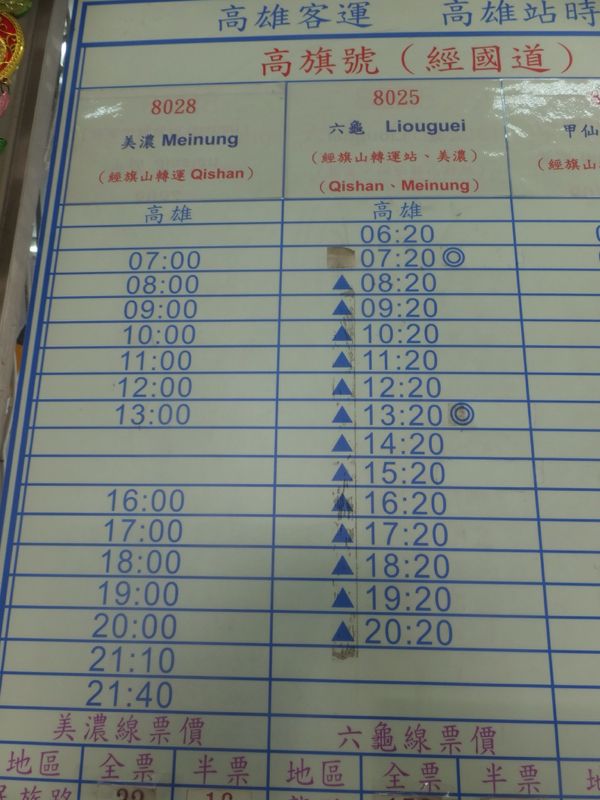 高雄客運 高雄站時
高旗號（經國道）
8028
美濃 Meinung
（經旗山轉運 Qishan）
高雄
07:00
08:00
09:00
10:00
11:00
12:00
13:00
16:00
17:00
18:00
19:00
20:00
21:10
21:40
美濃線票價
地區 全票 半票
8025
六龜 Liouguei
（經旗山轉運站、美濃）
（Qishan、Meinung）
高雄
06:20
07:20 ◎
▲ 08:20
▲ 09:20
▲ 10:20
▲ 11:20
▲ 12:20
▲ 13:20 ◎
▲ 14:20
▲ 15:20
▲ 16:20
▲ 17:20
▲ 18:20
▲ 19:20
▲ 20:20
六龜線票價
地區 全票 半票
甲仙
（經旗山